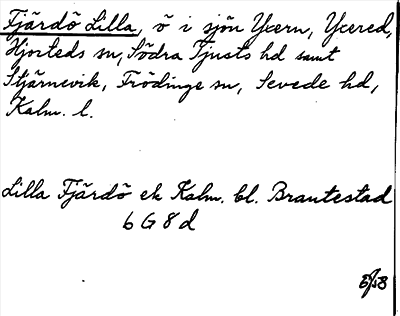 Fjärdö Lilla, ö i sjön Yxern, Yxered,
Hjorteds sn, Södra Tjusts hd samt
Stjärnevik, Frödinge sn, Sevede hd,
Kalm. l.
Lilla Fjärdö ek Kalm. bl. Brantestad
6 G 8 d